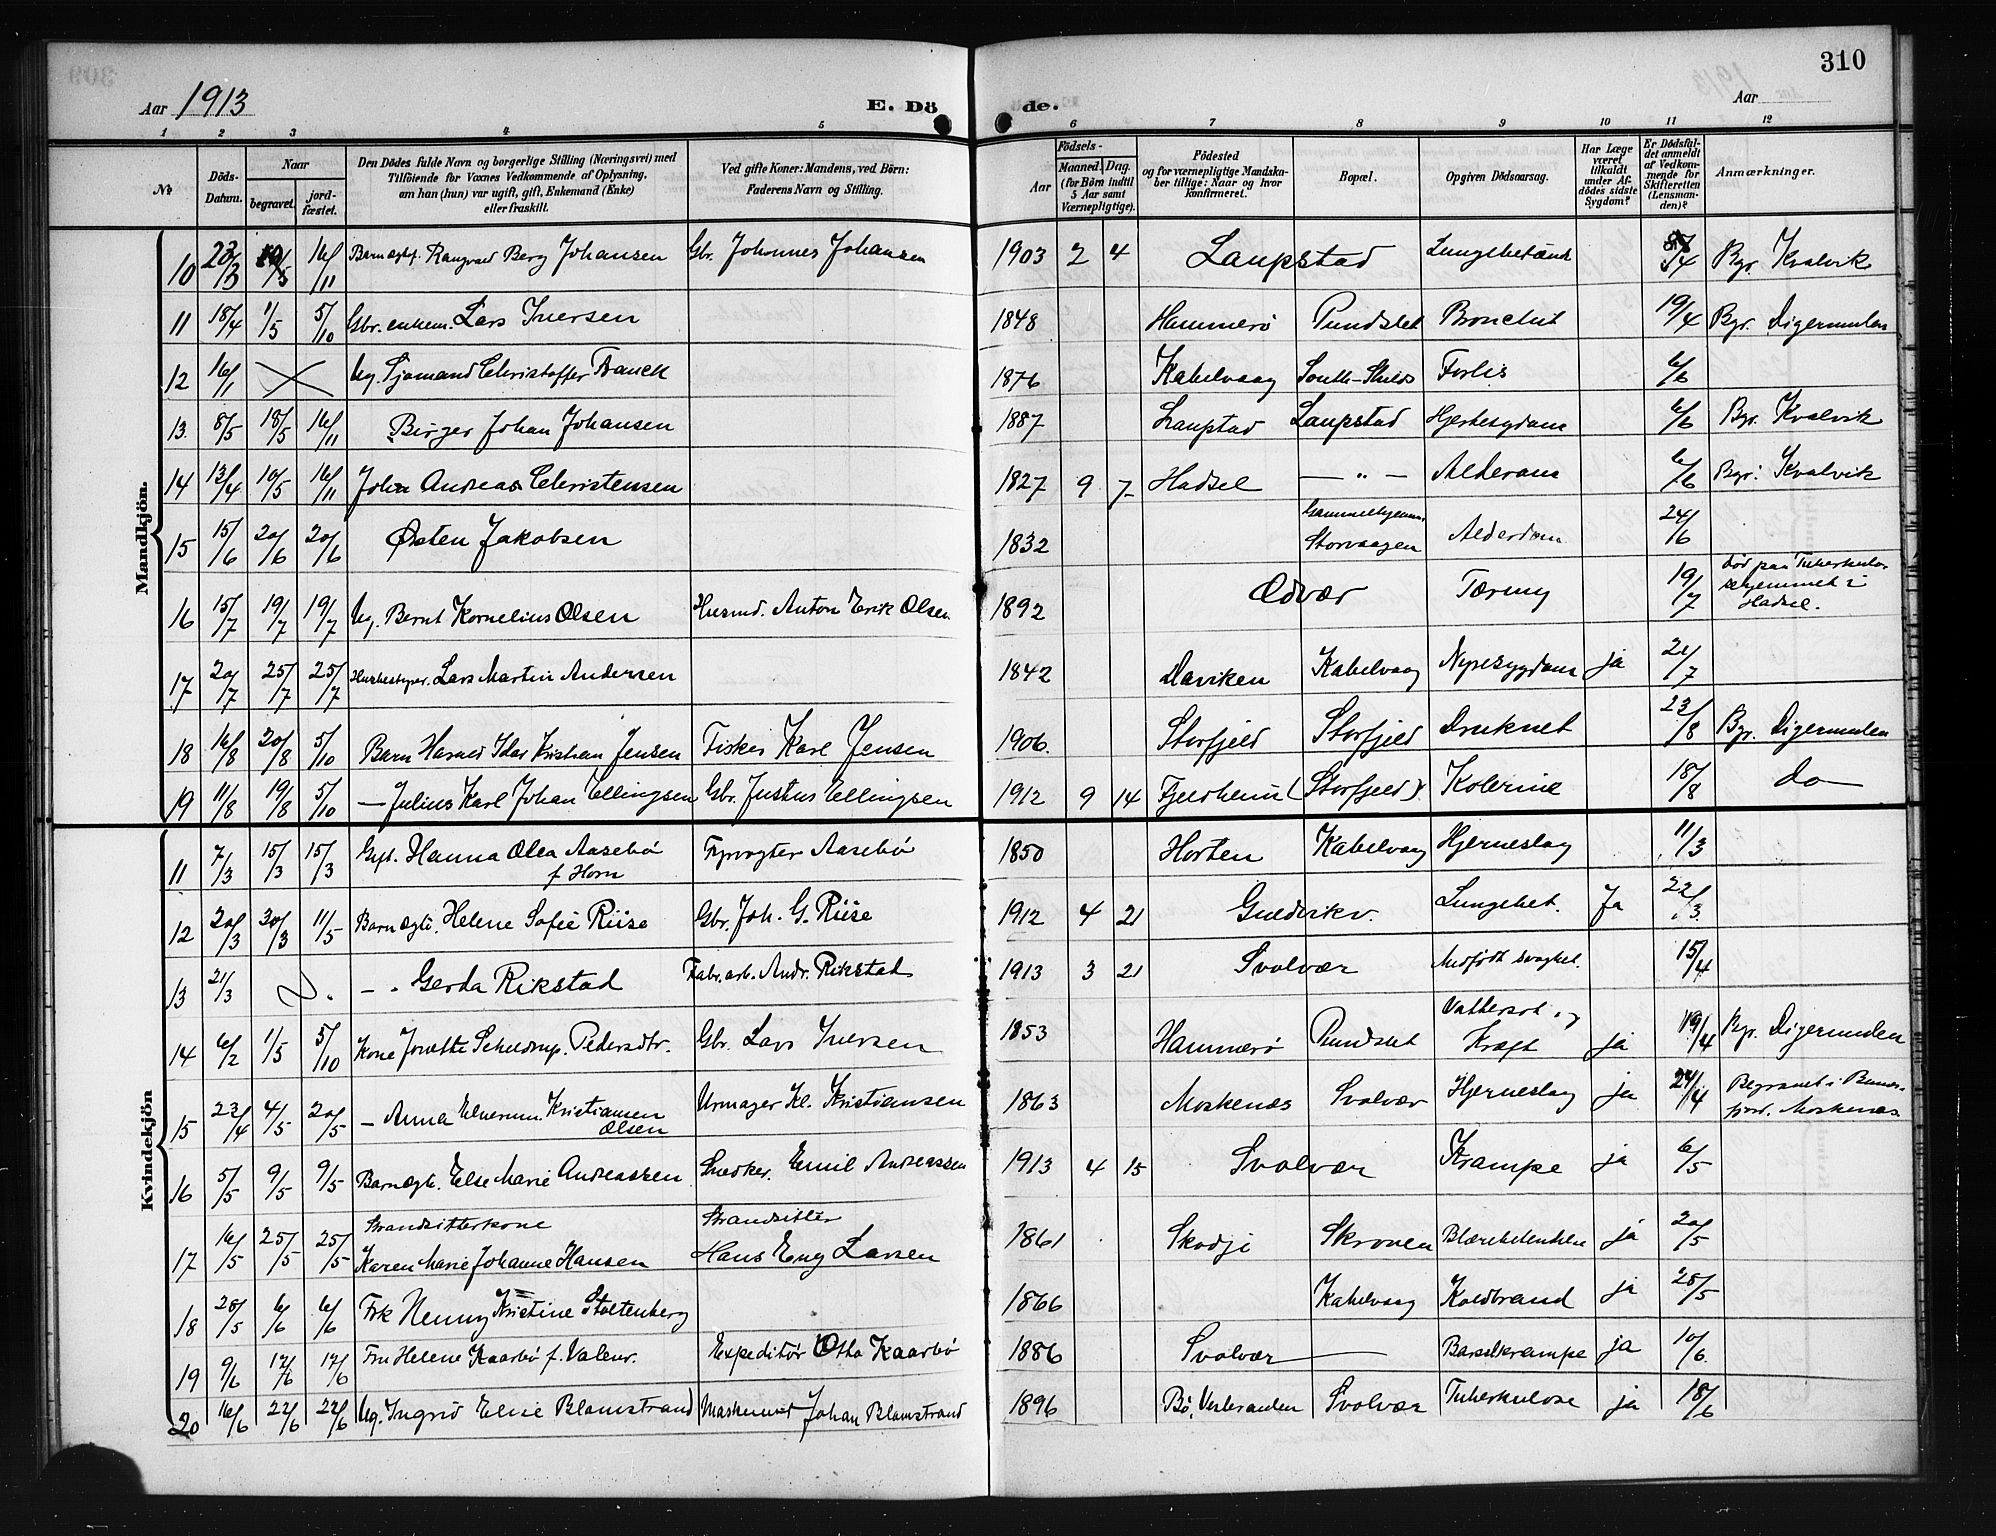 310
Aar 1913
E. Döde.
Aar
1 2 3 4 5 6 7 8 9 10 11 12
No
Döds-Datum.
Naar
begravet.
jord-fæstet.
Den Dödes fulde Navn og borgerlige Stilling (Næringsvei) med
Tilföiende for Voxnes Vedkommende af Oplysning,
om han (hun) var ugift, gift, Enkemand (Enke)
eller fraskilt.
Ved gifte Koner: Mandens, ved Börn:
Faderens Navn og Stilling.
Födsels-
Aar
Maaned. Dag.
(for Börn indtil
5 Aar samt
Værnepligtige).
Födested
og for værnepligtige Mandska-
ber tillige: Naar og hvor
konfirmeret.
Bopæl.
Opgiven Dödsaarsag.
Har Læge
været
tilkaldt
under Af-
dödes sidste
Sygdom?
Er Dödsfal-
det anmeldt
af Vedkom-
mende for
Skifteretten
(Lensman-
den)?
Anmærkninger.
Mandkjön.
10 Johansen Gbr. Johannes Johansen 1903 2 4 Laupstad Bgr. Kvalvik
11 18/4 1/5 5/10 Gbr. enkem. Lars Iversen 1848 Hammerö Pundslet Bronchit 19/4 Bgr. Digermulen
12 16/1 Ug. Sjømand Christoffer Franck 1876 Kabelvaag South-Shields Forlis 6/6
13 8/5 18/5 16/11 Birger Johan Johansen 1887 Laupstad Laupstad Hjertesygdom 6/6 Bgr. Kvalvik
14 13/4 10/5 16/11 Johan Andreas Christensen 1827 9 7 Hadsel — " — 6/6 Bgr. Kvalvik
15 15/6 20/6 20/6 Østen Jakobsen 1832 Storvaagen Alderdom 24/6
16 15/7 19/7 19/7 Ug. Bernt Kornelius Olsen Husmd. Anton Erik Olsen 1892 Ødvær Tæring 19/7 død paa Tuberkulo-
sehjemmet i
Hadsel.
17 20/7 25/7 25/7 Lars Martin Andersen 1842 Daviken Kabelvaag Nyresygdom ja 21/7
18 16/8 20/8 5/10 Barn Harald Idar Kristian Jensen Fisker Karl Jensen 1906 Storfjeld Storfjeld Druknet 23/8 Bgr. Digermulen
19 11/8 19/8 5/10 — Julius Karl Johan Ellingsen Gbr. Justus Ellingsen 1912 9 14 Fjeldheim (Storfjeld) Kolerine 18/8 do —
Kvindekjön
11 7/3 15/3 15/3 Gift. Hanna Olea Aasebø
f Horn Fyrvogter Aasebø 1850 Horten Kabelvaag Hjerneslag 11/3
12 20/3 30/3 11/5 Barn ægte. Helene Sofie Riise Gbr. Joh. G. Riise 1912 4 21 Lungebet. Ja 22/3
13 21/3 — " Gerda Rikstad Fabr.arb. Andr. Rikstad 1913 3 21 Svolvær Medfödt svaghet. 15/4
14 6/2 1/5 5/10 Kone Pedersdtr. Gbr. Lars Iversen 1853 Hammerö Pundslet Vattersot og
Kræft ja 19/4 Bgr. Digermulen
15 23/4 4/5 20/5 — Anna Kristiansen
Olsen Urmager Kl. Kristiansen 1863 Moskenæs Svolvær Hjerneslag ja 24/4 Begravet i
Moskenæs
16 5/5 9/5 9/5 Barn ægte. Else Marie Andreassen Snedker. Emil Andreassen 1913 4 15 Svolvær Krampe ja 6/5
17 16/5 25/5 25/5 Strandsitterkone
Karen Marie Johanne Hansen Strandsitter
Hans Eng Larsen 1861 Skodje Skroven Blærebetendelse ja 20/5
18 25/5 6/6 6/6 Frk Henny Kristine Stoltenberg 1866 Kabelvaag Koldbrand ja 25/5
19 9/6 17/6 17/6 Fru Helene Kaarbø f. Valeur. Expeditör Otto Kaarbø 1886 Svolvær — Barselkrampe ja 10/6
20 16/6 22/6 22/6 Ug. Ingrid Elise Blomstrand Maskinist Johan Blomstrand 1896 Bø, Vesteraalen Svolvær Tuberkulose ja 18/6